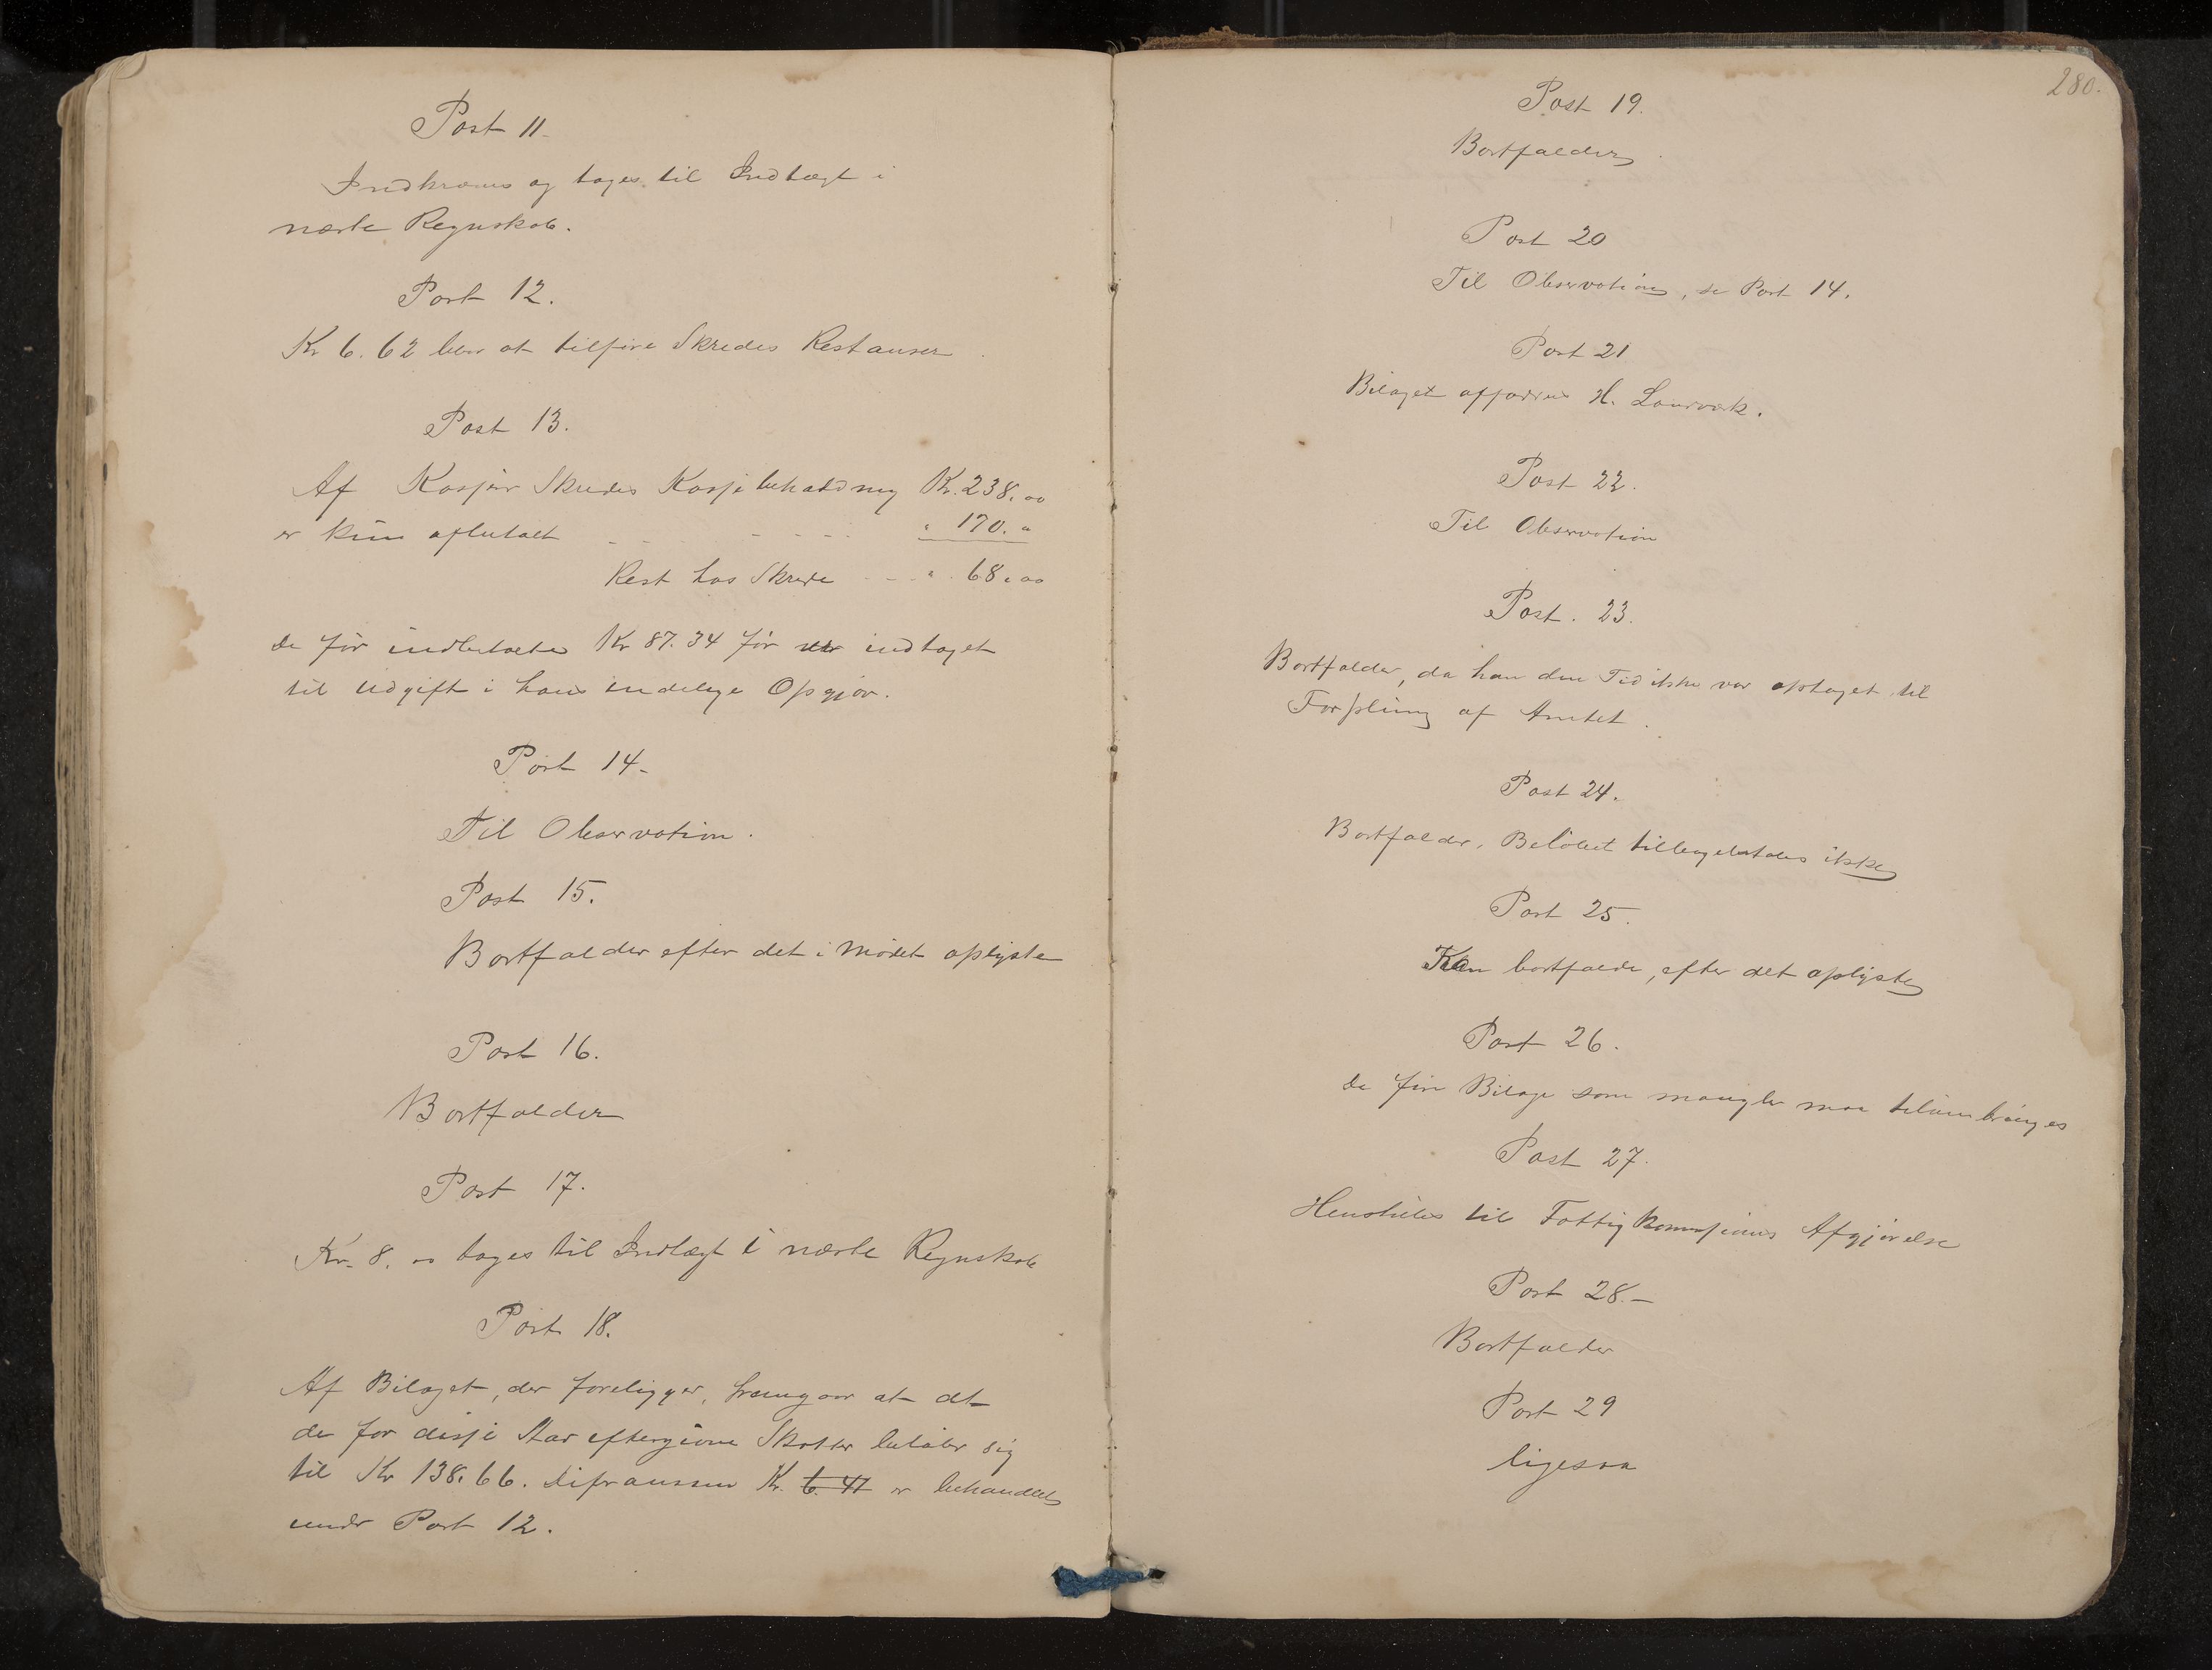 Post 11.
Indkræves og tages til Indtægt i
næste Regnskab.
Post 12.
Kr 6.62 blev at tilføre Skredes Restanser
Post 13.
Af Kasjer Skredes Kassjebeholdning Kr. 238.00
er kun afbetalt - - - - - - " 170. "
Rest hos Skrede - - - " 68.00
De før indbetalte Kr 87.34 før indtaget
til Udgift i hans endelige Opgjør.
Post 14.
Til Observation.
Post 15.
Bortfalder efter det i Mødet oplyste
Post 16.
Bortfalder
Post 17.
Kr. 8.00 tages til Indtægt i næste Regnskab
Post 18.
Af Bilaget, der foreligger, fremgaar at det
de for disse Aar eftergivne Skatter beløber sig
til Kr 138.66. Difransen Kr. 6.41 er behandlet
under Post 12.
280.
Post 19.
Bortfalder
Post 20
Til Observation, se Post 14.
Post 21
Bilaget affordres H. Laurvæk.
Post 22.
Til Observation
Post. 23.
Bortfalder, da han den Tid ikke var optaget til
Forpleining af Amtet.
Post 24.
Bortfalder. Beløbet tilbagebetales ikke
Post 25.
Kan bortfalde, efter det oplyste
Post 26.
De fire Bilage som mangler maa tilveiebringes
Post 27.
Henstilles til Fattigkommisjonens Afgjørelse
Post 28.-
Bortfalder
Post 29
ligesaa